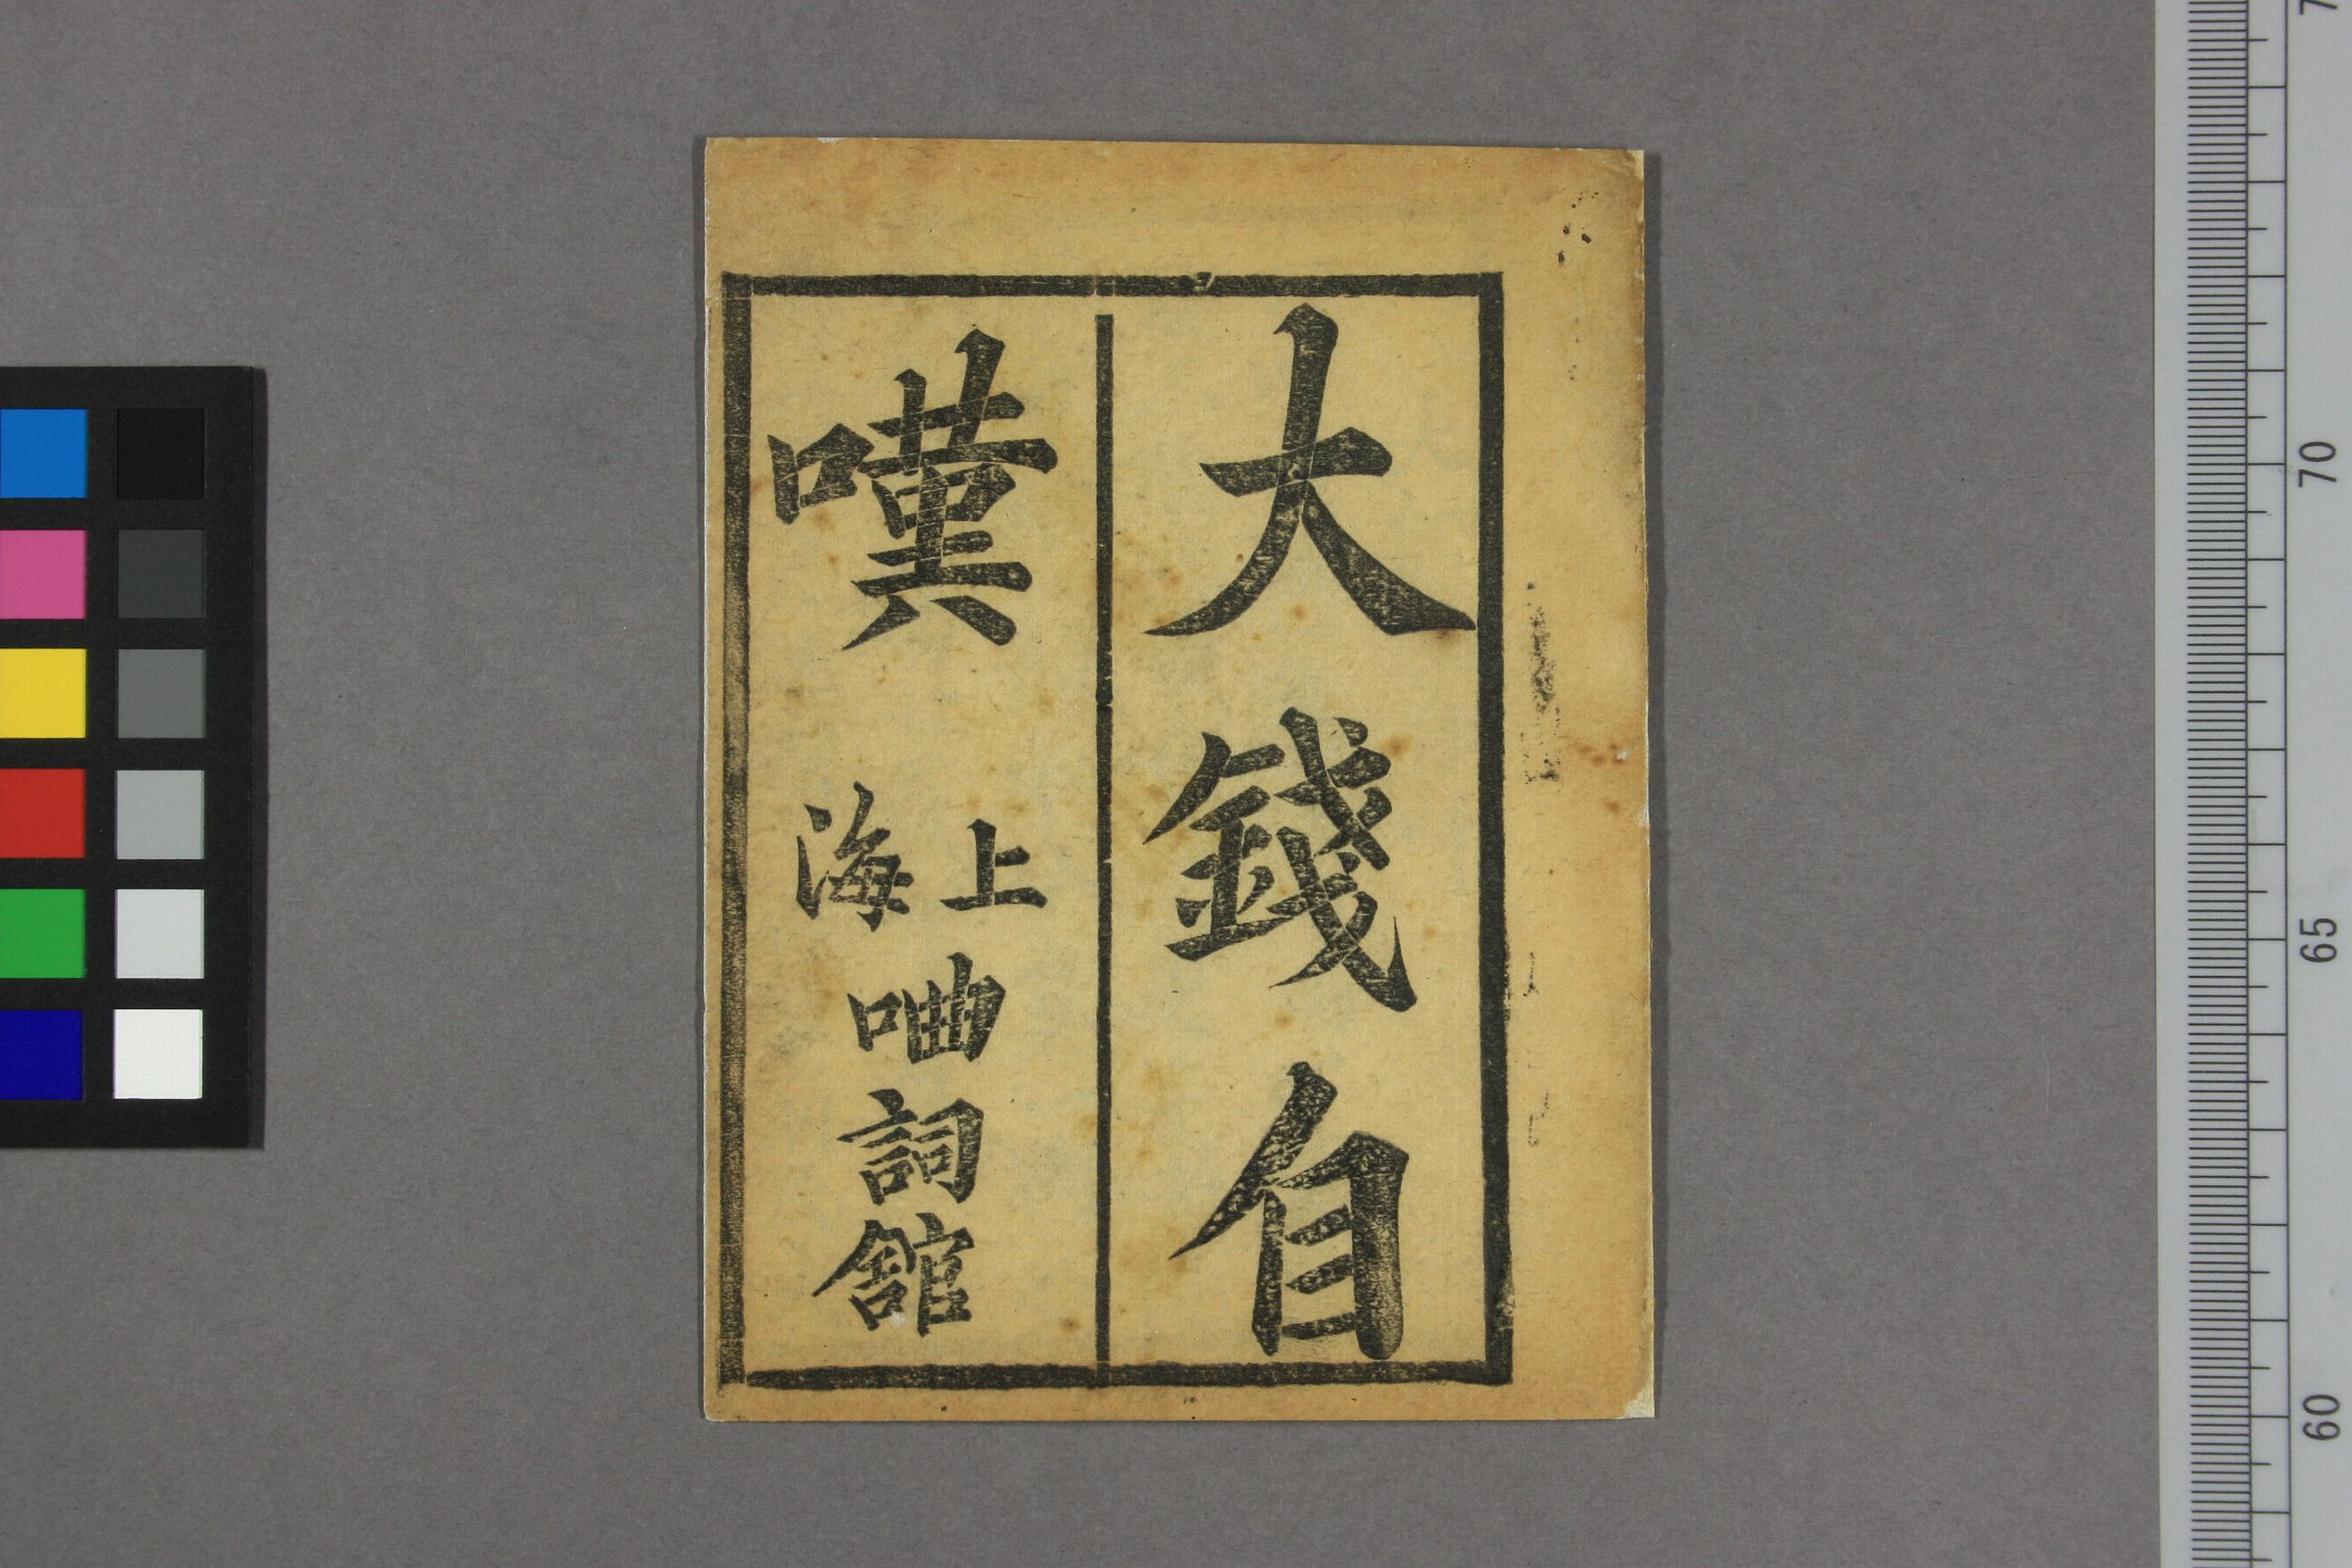 大錢自
嘆
上海
㖆詞舘
70
65
60